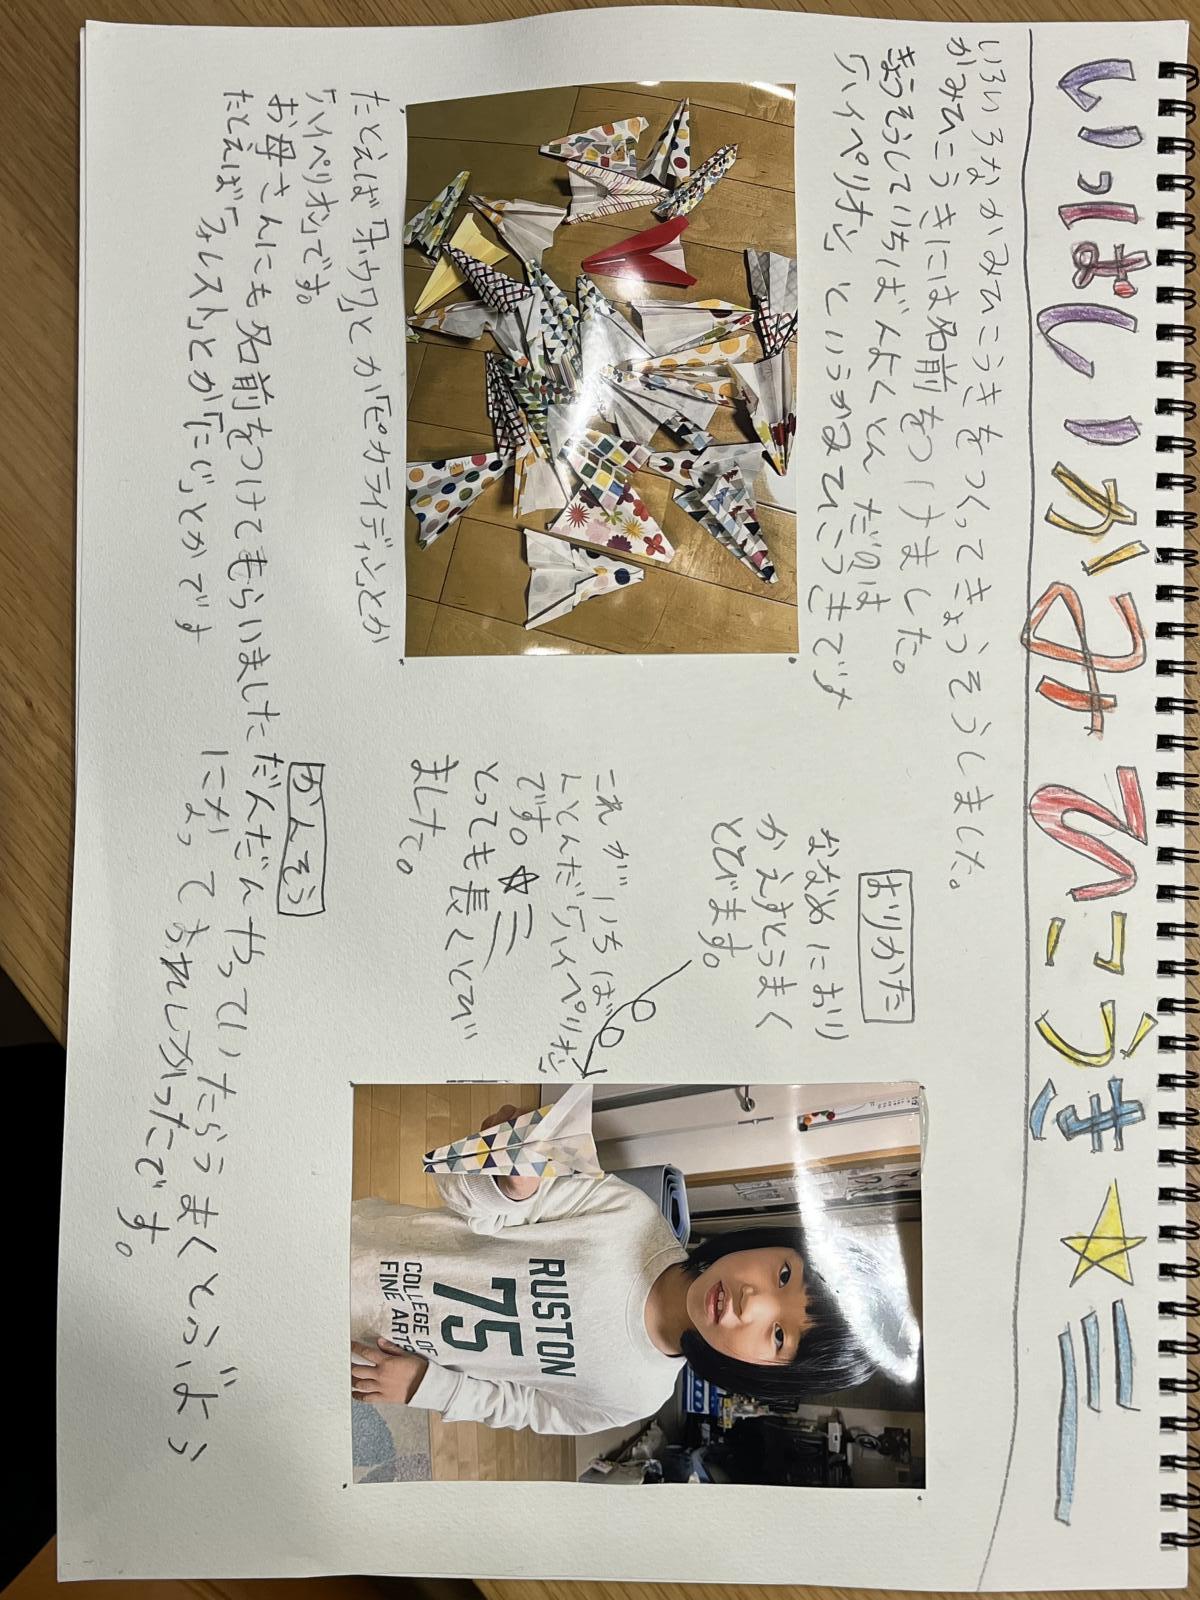 いっぱいかみひこうき☆
いろいろなかみひこうきをつくってきょうそうしました。
かみひこうきには名前をつけました。
きょうそうしていちばんよくとんだのは
「ハイペリオン」というかみひこうきです
たとえば「ホウワ」とか「ピカライデン」とか
「ハイペリオン」です。
お母さんにも名前をつけてもらいました
たとえば「フォレスト」とか「にじ」とかです
おりかた
ななめにおり
かえすとうまく
とびます。
これがいちばん
とんだ「ハイペリオン」
です。☆
とっても長くとび
ました。
かんそう
だんだんやっていたらうまくとぶよう
になってうれしかったです。
RUSTON
75
COLLEGE OF
FINE ARTS